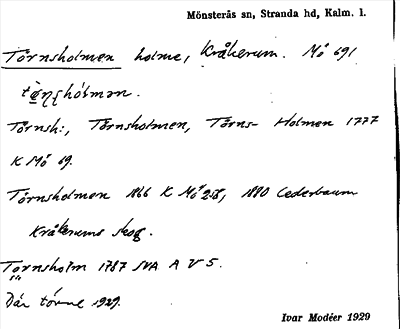 Mönsterås sn, Stranda hd, Kalm. l.
Törnsholmen holme, Kråkerum. Mö 691
Törnsh:, Törnsholmen, Törns- Holmen 1777
K Mö 69.
Törnsholmen 1866 K Mö 258, 1880 Cederbaum
Kråkerums skog.
Tornsholm 1787 SVA A V 5.
Där törne 1929.
Ivar Modéer 1929